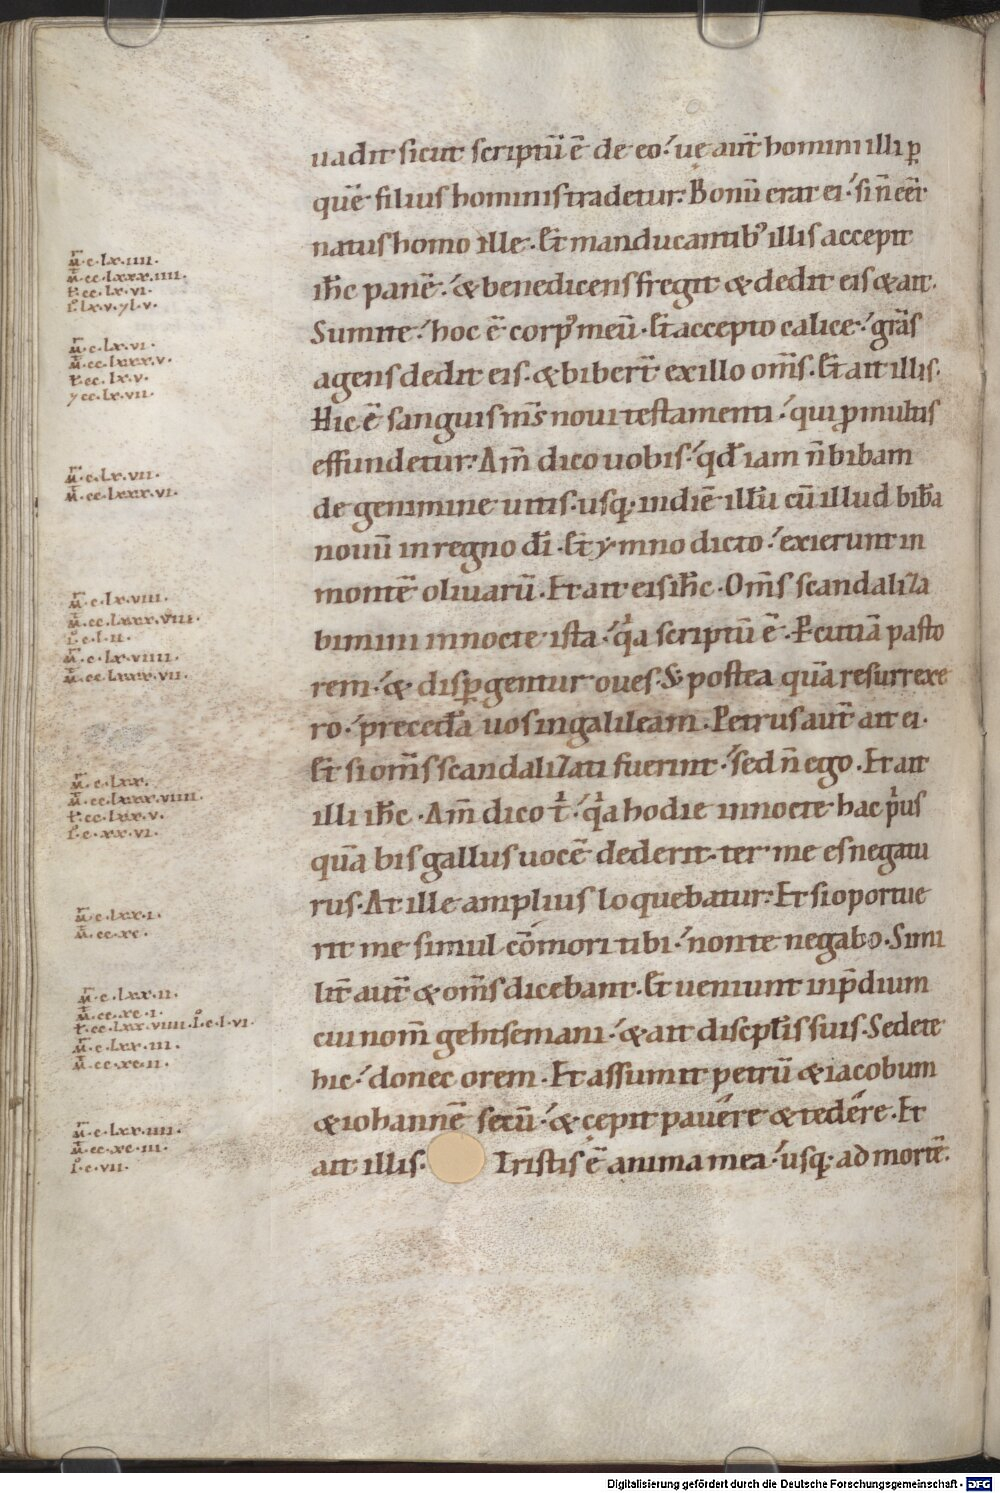 uadit sicut scriptū ē de eo. ue aut̄ homini illi ꝑ
quē filius hominis tradetur. Bonū erat ei. si n̄ eēt
natus homo ille. Et manducantibꝰ illis accepit
ih̄c panē. & benedicens fregit & dedit eis & ait.
Sumite. hoc ē corpꝰ meū. Et accepto calice. gr̄as
agens dedit eis. & biber̄t ex illo om̄s. Et ait illis.
Hic ē sanguis m̄s noui testamenti. qui ꝓ multis
effundetur. Am̄ dico uobis. qd̄ iam n̄ bibam
de genimine uitis. usq; in diē illū cū illud bibā
nouū in regno dī. Et ymno dicto. exierunt in
montē oliuarū. Et ait eis ih̄c. Om̄s scandaliza
bimini in nocte ista. qa scriptū ē. Percutiā pasto
rem. & dispgentur oues. S; postea quā resurrexe
ro. precedā uos in galileam. Petrus aut̄ ait ei.
Et si om̄s scandalizati fuerint. sed n̄ ego. Et ait
illi ih̄c. Am̄ dico t. qa hodie in nocte hac pus
quā bis gallus uocē dederit. ter me es negatu
rus. At ille amplius loquebatur. Et si oportue
rit me simul cōmori tibi. non te negabo. Simi
lit̄ aut̄ & om̄s dicebant. Et ueniunt in p̄dium
cui nom̄ gehtsemani. & ait discipl̄is suis. Sedete
hic. donec orem. Et assumit petrū & iacobum
& iohannē secū. & cepit pauere & tedere. Et
ait illis. Tristis ē anima mea. usq; ad mortē.
m̄.c.lx.iiii.
m̄.cc.lxxx.iiii.
l.cc.lx.vi.
m̄.c.lx.vi.
m̄.cc.lxxx.v.
l.cc.lx.v.
y cc.lx.vii.
m̄.c.lx.vii.
m̄.cc.lxxx.vi.
m̄.c.lx.viii.
m̄.cc.lxxx.viii.
i.c.l.ii.
m̄.c.lx.viiii.
m̄.cc.lxxx.vii.
m̄.c.lxx.
m̄.cc.lxxx.viiii.
l.cc.lxx.v.
i.c.xx.vi.
m̄.c.lxx.i.
m̄.cc.xc.
m̄.c.lxx.ii.
m̄.cc.xc.i.
l.cc.lxx.viiii.i.c.l.vi.
m̄.c.lxx.iii.
m̄.cc.xc.ii.
m̄.c.lxx.iiii.
m̄.cc.xc.iii.
i.c.vii.
Digitalisierung gefördert durch die Deutsche Forschungsgemeinschaft - DFG